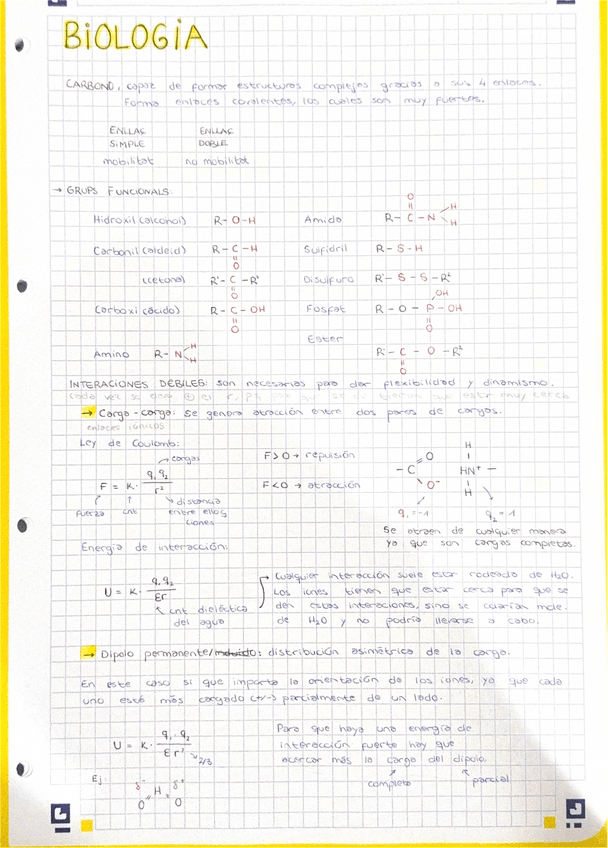 BIOLOGIA
CARBONO, capaz de formar estructuras complejas gracias a sus 4 enlaces.
Forma enlaces covalentes, los cuales son muy fuertes.
ENLLAÇ SIMPLE ENLLAÇ DOBLE
mobilitat no mobilitat
→ GRUPS FUNCIONALS:
Hidroxil (alcohol) R-O-H
Amida R-C-N H H O
Carbonil (aldeid) R-C-H O
Sulfidril R-S-H
(cetona) R'-C-R² O
Disulfuro R'-S-S-R²
Carboxi (ácido) R-C-OH O
Fosfat R-O-P-OH OH O
Amino R-N H H
Ester R'-C-O-R² O
INTERACIONES DÉBILES: son necesarias para dar flexibilidad y dinamismo.
→ Carga-carga: se genera atracción entre dos pares de cargas.
enlaces iónicos
Ley de Coulomb:
F = K · q₁ q₂ / r²
cargas
fuerza cnt distancia entre ellos iones
F>0 → repulsión
F<0 → atracción
-C O O⁻ H HN⁺- H
q₁=-1 q₂=1
Se atraen de cualquier manera
ya que son cargas completas.
Energía de interacción:
U = K · q₁q₂ / Er
cnt dieléctica
del agua
Cualquier interacción suele estar rodeado de H₂O.
Los iones tienen que estar cerca para que se
den estas interaciones, sino se colarían mole.
de H₂O y no podría llevarse a cabo.
→ Dipolo permanente/: distribución asimétrica de la carga.
En este caso si que importa la orientación de los iones, ya que cada
uno está más cargado (+/-) parcialmente de un lado.
U = K · q₁ · q₂ / Er² 2/3
Para que haya una energía de
interacción fuerte hay que
acercar más la carga del dipolo.
completa parcial
Ej:
δ⁻ δ⁺
O H O